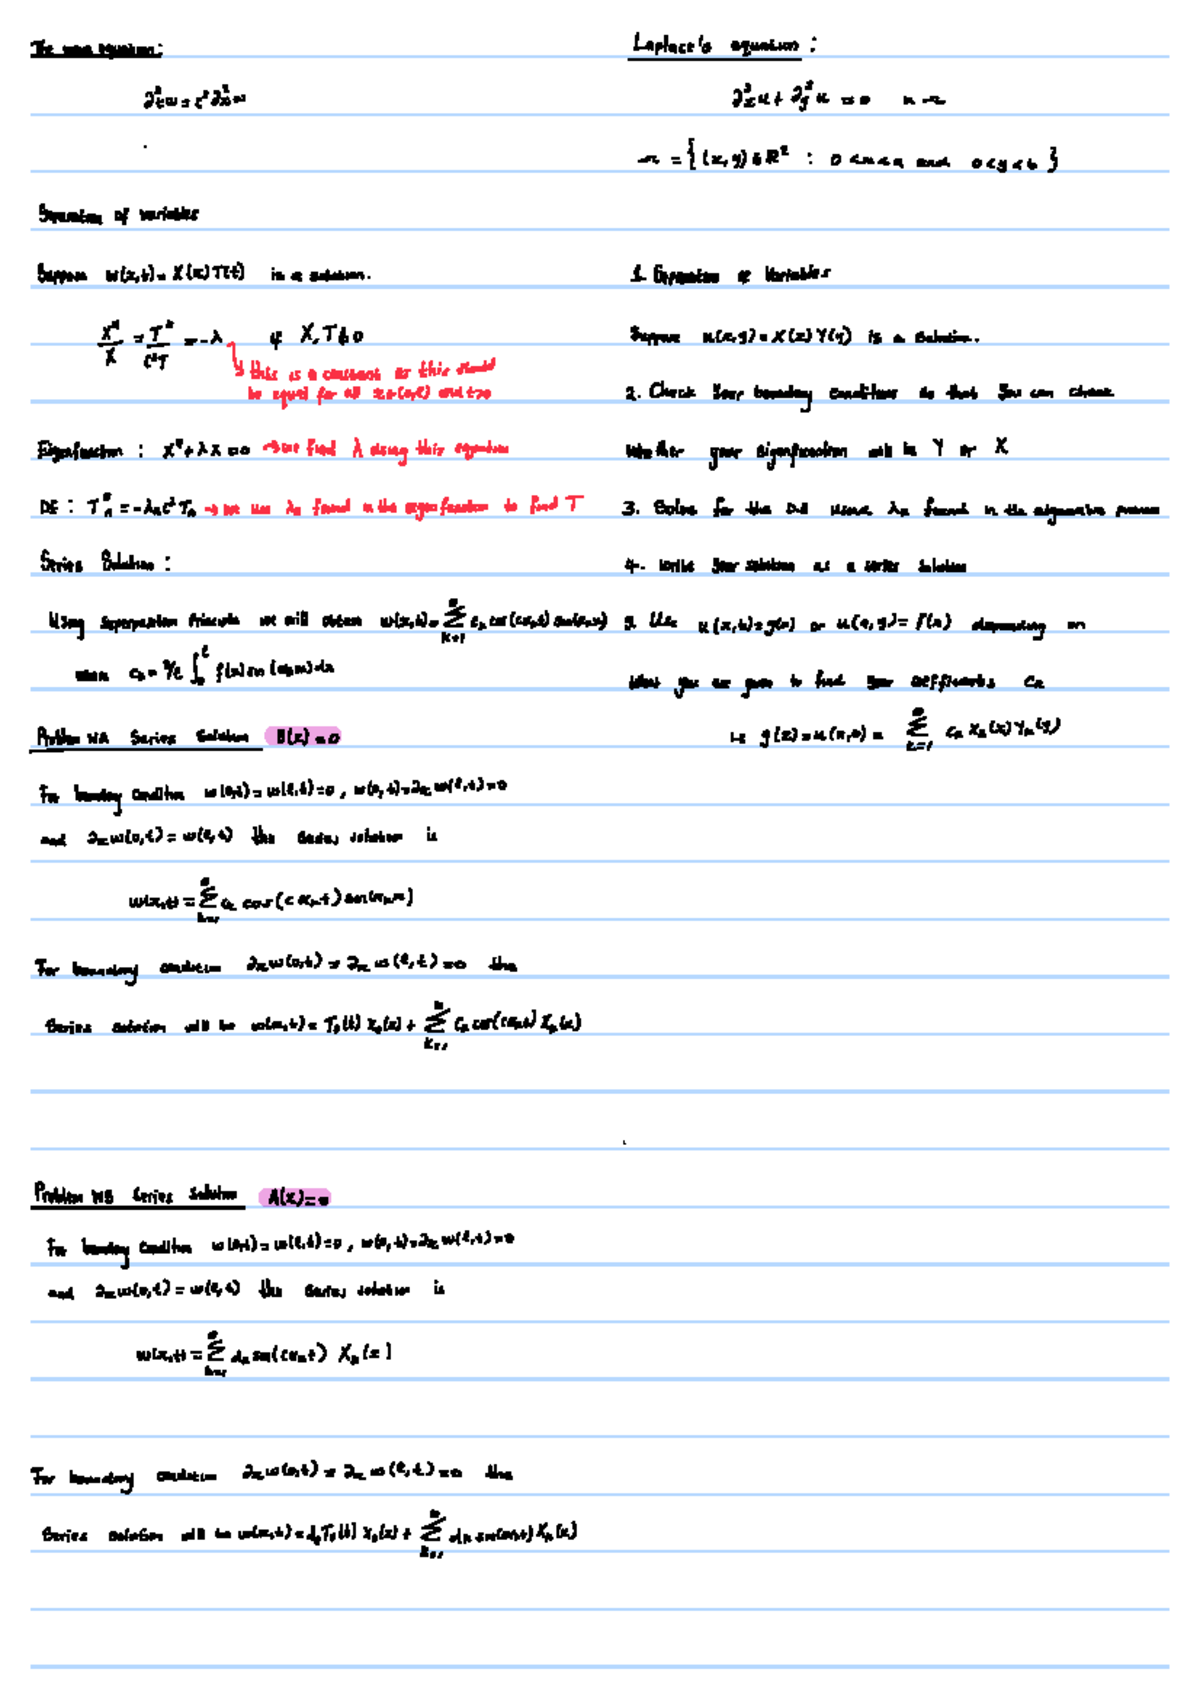 The wave equation:
∂²ₜw = c²∂²ₓw
Separation of variables
Suppose w(x,t) = X(x)T(t) is a solution.
X''/X = T''/c²T = -λ if X, T ≠ 0
→ this is a constant as this should
be equal for all x∈(0,ℓ) and t>0
Eigenfunction : X'' + λX = 0 → we find λ using this equation
DE : Tₙ'' = -λₙc²Tₙ → we use λₙ found in the eigenfunction to find T
Series Solution :
Using Superposition Principle we will obtain w(x,t) = Σ_{k=1}^{∞} cₖ cos(cαₖt) sin(αₖx)
where cₖ = 2/ℓ ∫₀^ℓ f(x) sin(αₖx) dx
Problem WA Series Solution B(x) = 0
For boundary condition w(0,t) = w(ℓ,t) = 0, w(0,t) = ∂ₓw(ℓ,t) = 0
and ∂ₓw(0,t) = w(ℓ,t) the series solution is
w(x,t) = Σ_{k=1}^{∞} cₖ cos(cαₖt) sin(αₖx)
For boundary condition ∂ₓw(0,t) = ∂ₓw(ℓ,t) = 0 the
Series solution will be w(x,t) = T₀(t) X₀(x) + Σ_{k=1}^{∞} cₖ cos(cαₖt) Xₖ(x)
Problem WB Series Solution A(x) = 0
For boundary condition w(0,t) = w(ℓ,t) = 0, w(0,t) = ∂ₓw(ℓ,t) = 0
and ∂ₓw(0,t) = w(ℓ,t) the series solution is
w(x,t) = Σ_{k=1}^{∞} dₖ sin(cαₖt) Xₖ(x)
For boundary condition ∂ₓw(0,t) = ∂ₓw(ℓ,t) = 0 the
Series solution will be w(x,t) = d₀T₀(t) X₀(x) + Σ_{k=1}^{∞} dₖ sin(cαₖt) Xₖ(x)
Laplace's equation :
∂²ₓu + ∂²ᵧu = 0 in Ω
Ω = {(x,y) ∈ R² : 0 < x < a and 0 < y < b}
1. Separation of Variables
Suppose u(x,y) = X(x)Y(y) is a solution.
2. Check your boundary conditions so that you can check
Whether your eigenfunction will be Y or X
3. Solve for the DE using λₖ found in the eigenvalue problem
4. Write your solution as a series solution
5. Use u(x,b) = g(x) or u(a,y) = f(x) depending on
What you are given to find your coefficients cₖ
ie g(x) = u(x,0) = Σ_{k=1}^{∞} cₖ Xₖ(x) Yₖ(y)